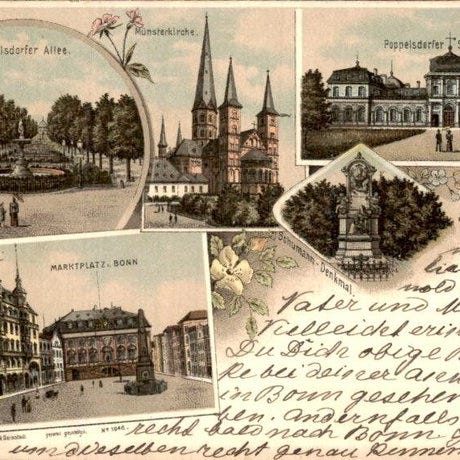 lsdorfer Allee.
Münsterkirche.
Poppelsdorfer S
Schumann-Denkmal.
MARKTPLATZ i. BONN
nold
Vater und M
Vielleicht erin
Du Dich obige
ke bei deiner
in Bonn gesehen
ben. Andernfalls
recht bald nach Bonn
um dieselben recht genau kennen
No 1946.